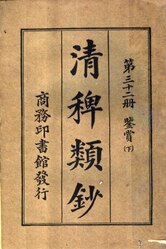 第三十二册 鉴賞(下)
清稗類鈔
商務印書館發行